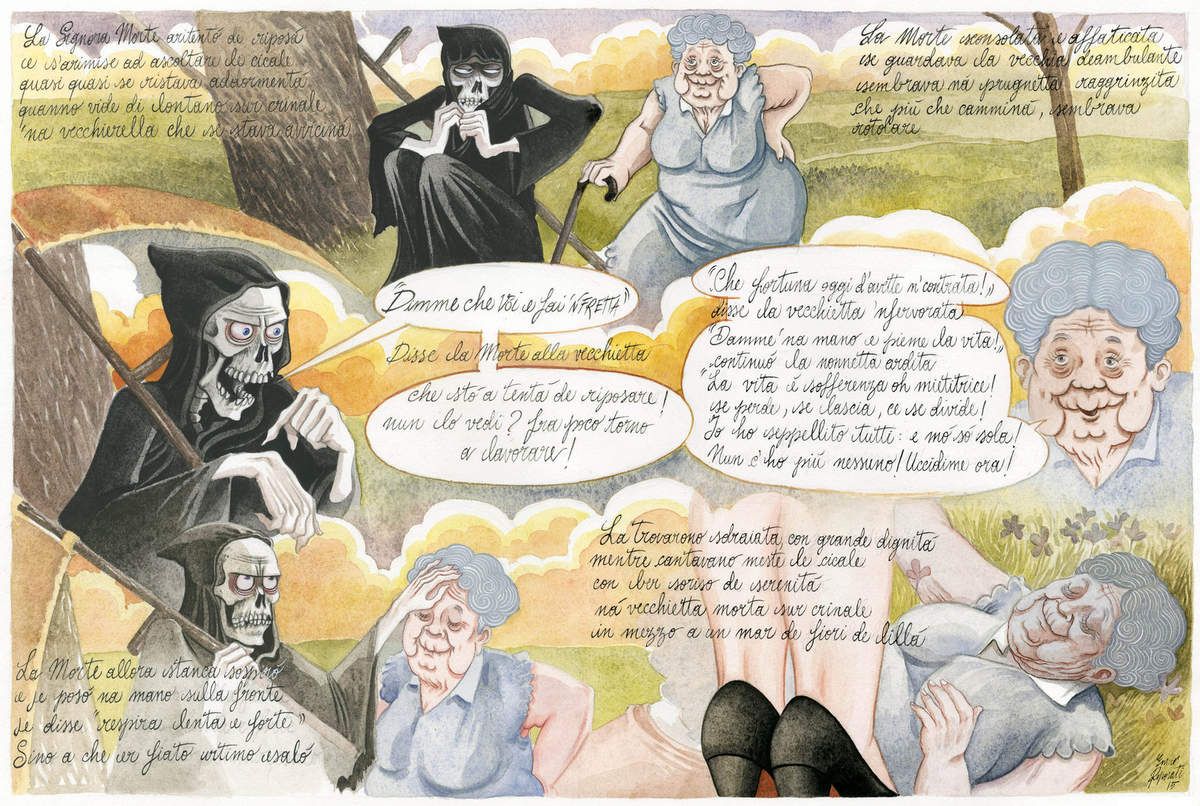 La Signora Morte aritentó de riposà
ce s'arimise ad ascoltare le cicale
quasi quasi se ristava addormenta
quanno vide de lontano sur crinale
'na vecchierella che se stava avvicinà
La Morte sconsolata e affaticata
se guardava la vecchia deambulante
sembrava ná prugnetta raggrinzita
che più che camminá, sembrava
rotolare
"Dimme che voi e fai 'N FRETTA"
Disse la Morte alla vecchietta
che stó a tentá de riposare!
nun lo vedi? fra poco torno
a lavorare!
"Che fortuna oggi d'avette n'contrata!"
disse la vecchietta 'nfervorata
"Damme 'na mano e pieme la vita!"
continuó la nonnetta ardita
"La vita é sofferenza oh mietitrice!
se perde, se lascia, ce se divide!
Io ho seppellito tutti: e mó só sola!
Nun c'ho più nessuno! Uccidime ora!
La Morte allora stanca sospiró
e je posó na mano sulla fronte
Je disse "respira lenta e forte"
Sino a che er fiato urtimo esaló
La trovarono sdraiata con grande dignitá
mentre cantavano meste le cicale
con ber soriso de serenitá
ná vecchietta morta sur crinale
in mezzo a un mar de fiori de lillá
15